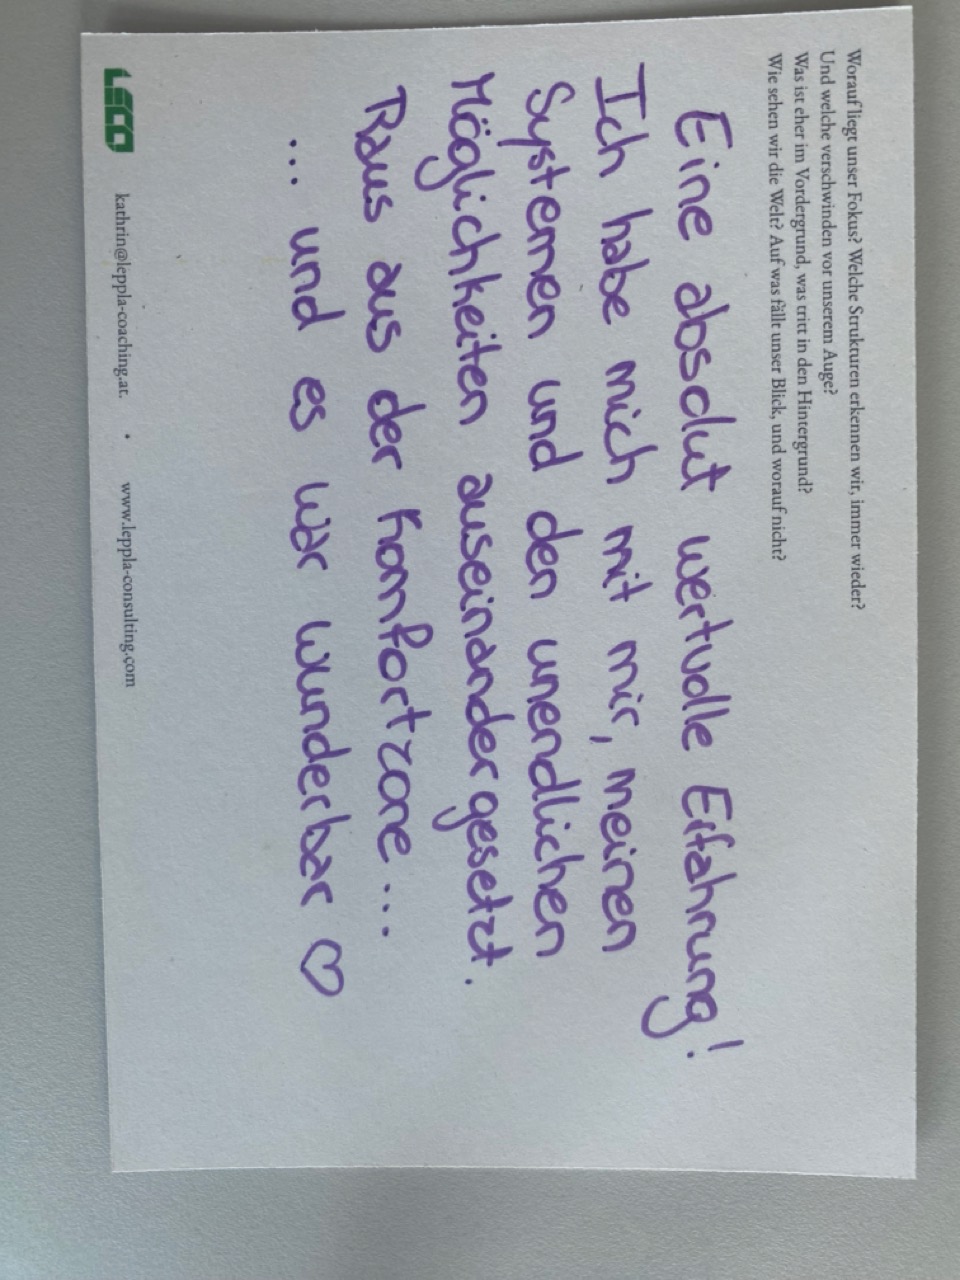 Worauf liegt unser Fokus? Welche Strukturen erkennen wir, immer wieder?
Und welche verschwinden vor unserem Auge?
Was ist eher im Vordergrund, was tritt in den Hintergrund?
Wie sehen wir die Welt? Auf was fällt unser Blick, und worauf nicht?
Eine absolut wertvolle Erfahrung!
Ich habe mich mit mir, meinen
Systemen und den unendlichen
Möglichkeiten auseinandergesetzt.
Raus aus der Komfortzone...
... und es war wunderbar ♡
LECO
kathrin@leppla-coaching.at. • www.leppla-consulting.com